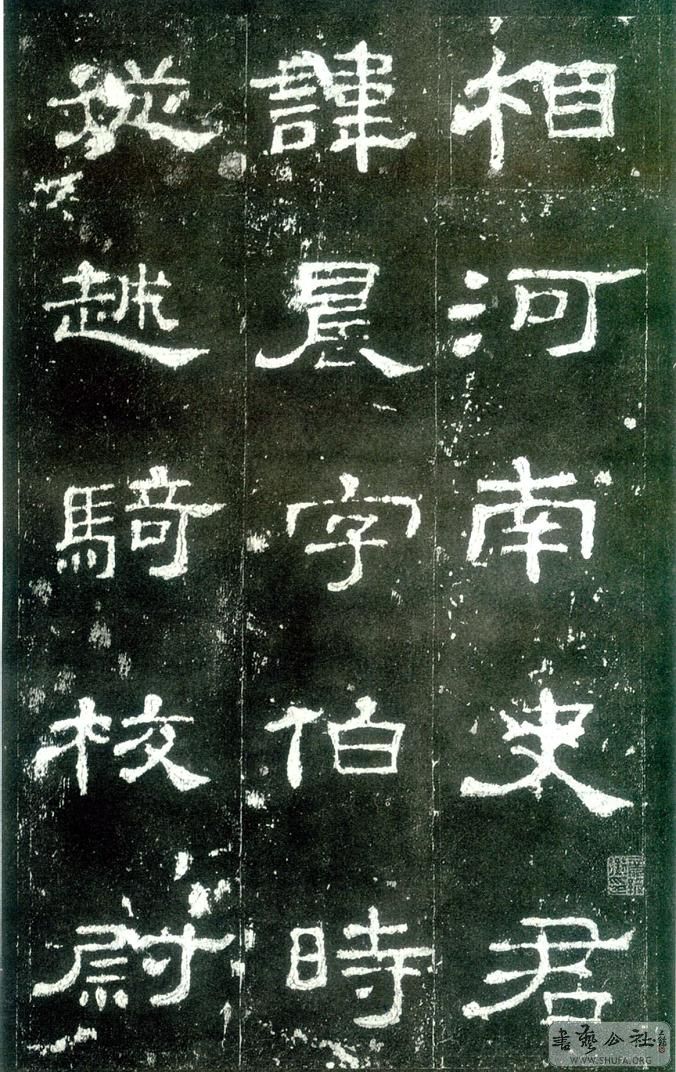 相河南史君
諱晨字伯時
從越騎校尉
書藝公社
WWW.SHUFA.ORG